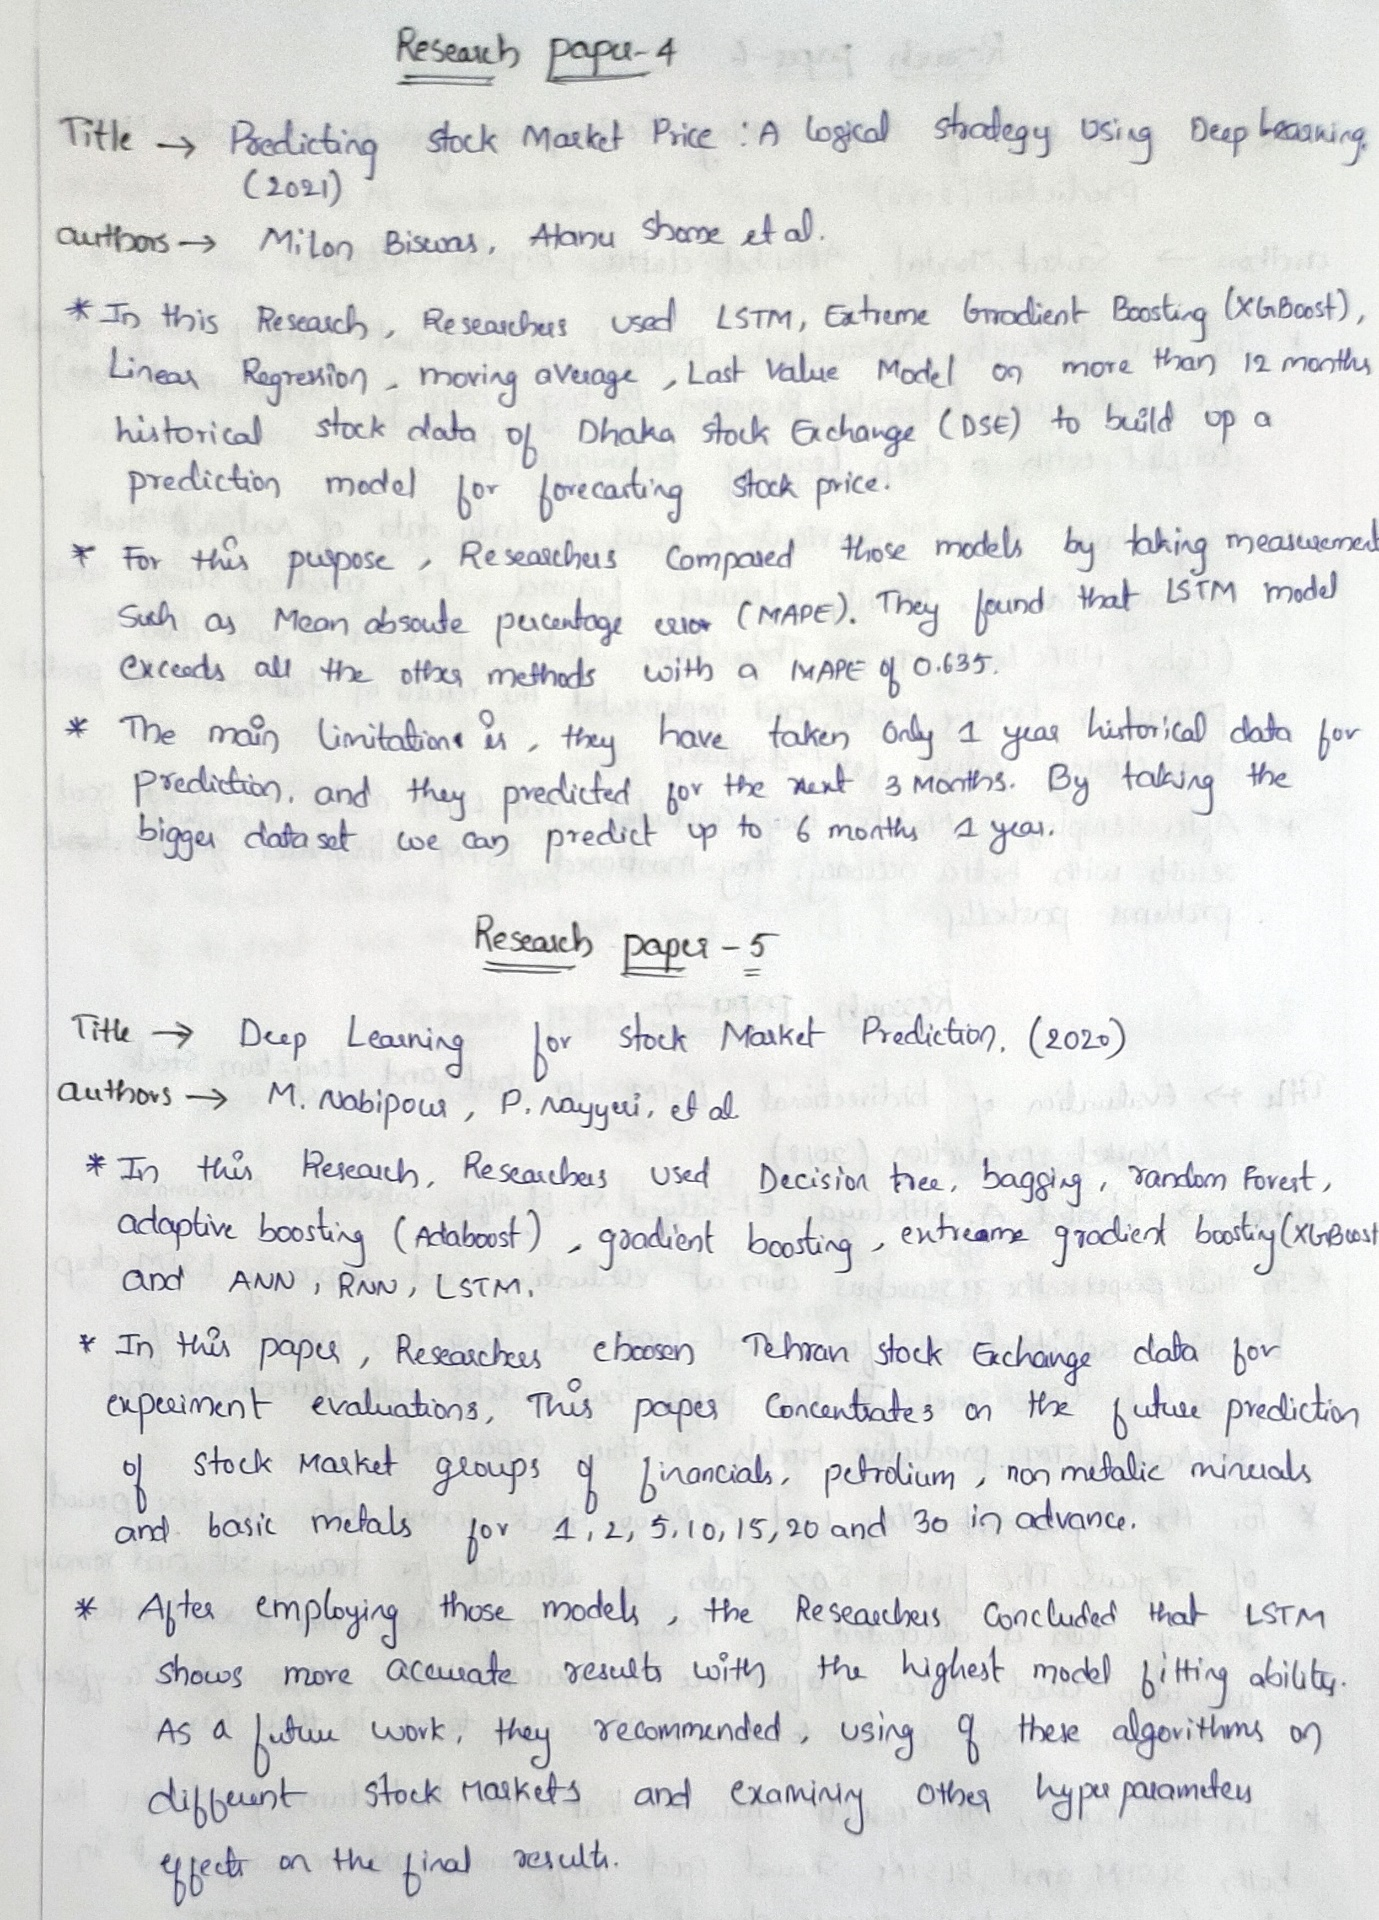 Research paper-4
Title → Predicting stock Market Price : A logical stradegy Using Deep Learning.
(2021)
authors → Milon Biswas, Atanu Shome et al.
* In this Research, Researchers used LSTM, Extreme Gradient Boosting (XGBoost),
Linear Regression, moving average, Last Value Model on more than 12 months
historical stock data of Dhaka stock Exchange (DSE) to build up a
prediction model for forecasting stock price.
* For this purpose, Researchers Compared those models by taking measurement
Such as Mean absoute percentage error (MAPE). They found that LSTM model
exceeds all the other methods with a MAPE of 0.635.
* The main limitations is, they have taken Only 1 year historical data for
prediction. and they predicted for the next 3 Months. By taking the
bigger data set we can predict up to 6 months 1 year.
Research paper - 5
Title → Deep Learning for stock Market Prediction. (2020)
authors → M. Nabipour, P. Nayyeri, et al
* In this Research, Researchers used Decision tree, bagging, random Forest,
adaptive boosting (Adaboost), gradient boosting, extreame gradient boosting (XGBoost
and ANN, RNN, LSTM.
* In this paper, Researchers choosen Tehran stock Exchange data for
experiment evaluations, This paper Concentrates on the future prediction
of stock Market groups of financials, petrolium, non metalic minerals
and basic metals for 1, 2, 5, 10, 15, 20 and 30 in advance.
* After employing those models, the Researchers Concluded that LSTM
shows more accurate results with the highest model fitting ability.
As a future work, they recommended, using of these algorithms on
different stock Markets and examining other hyper parameters
effects on the final results.